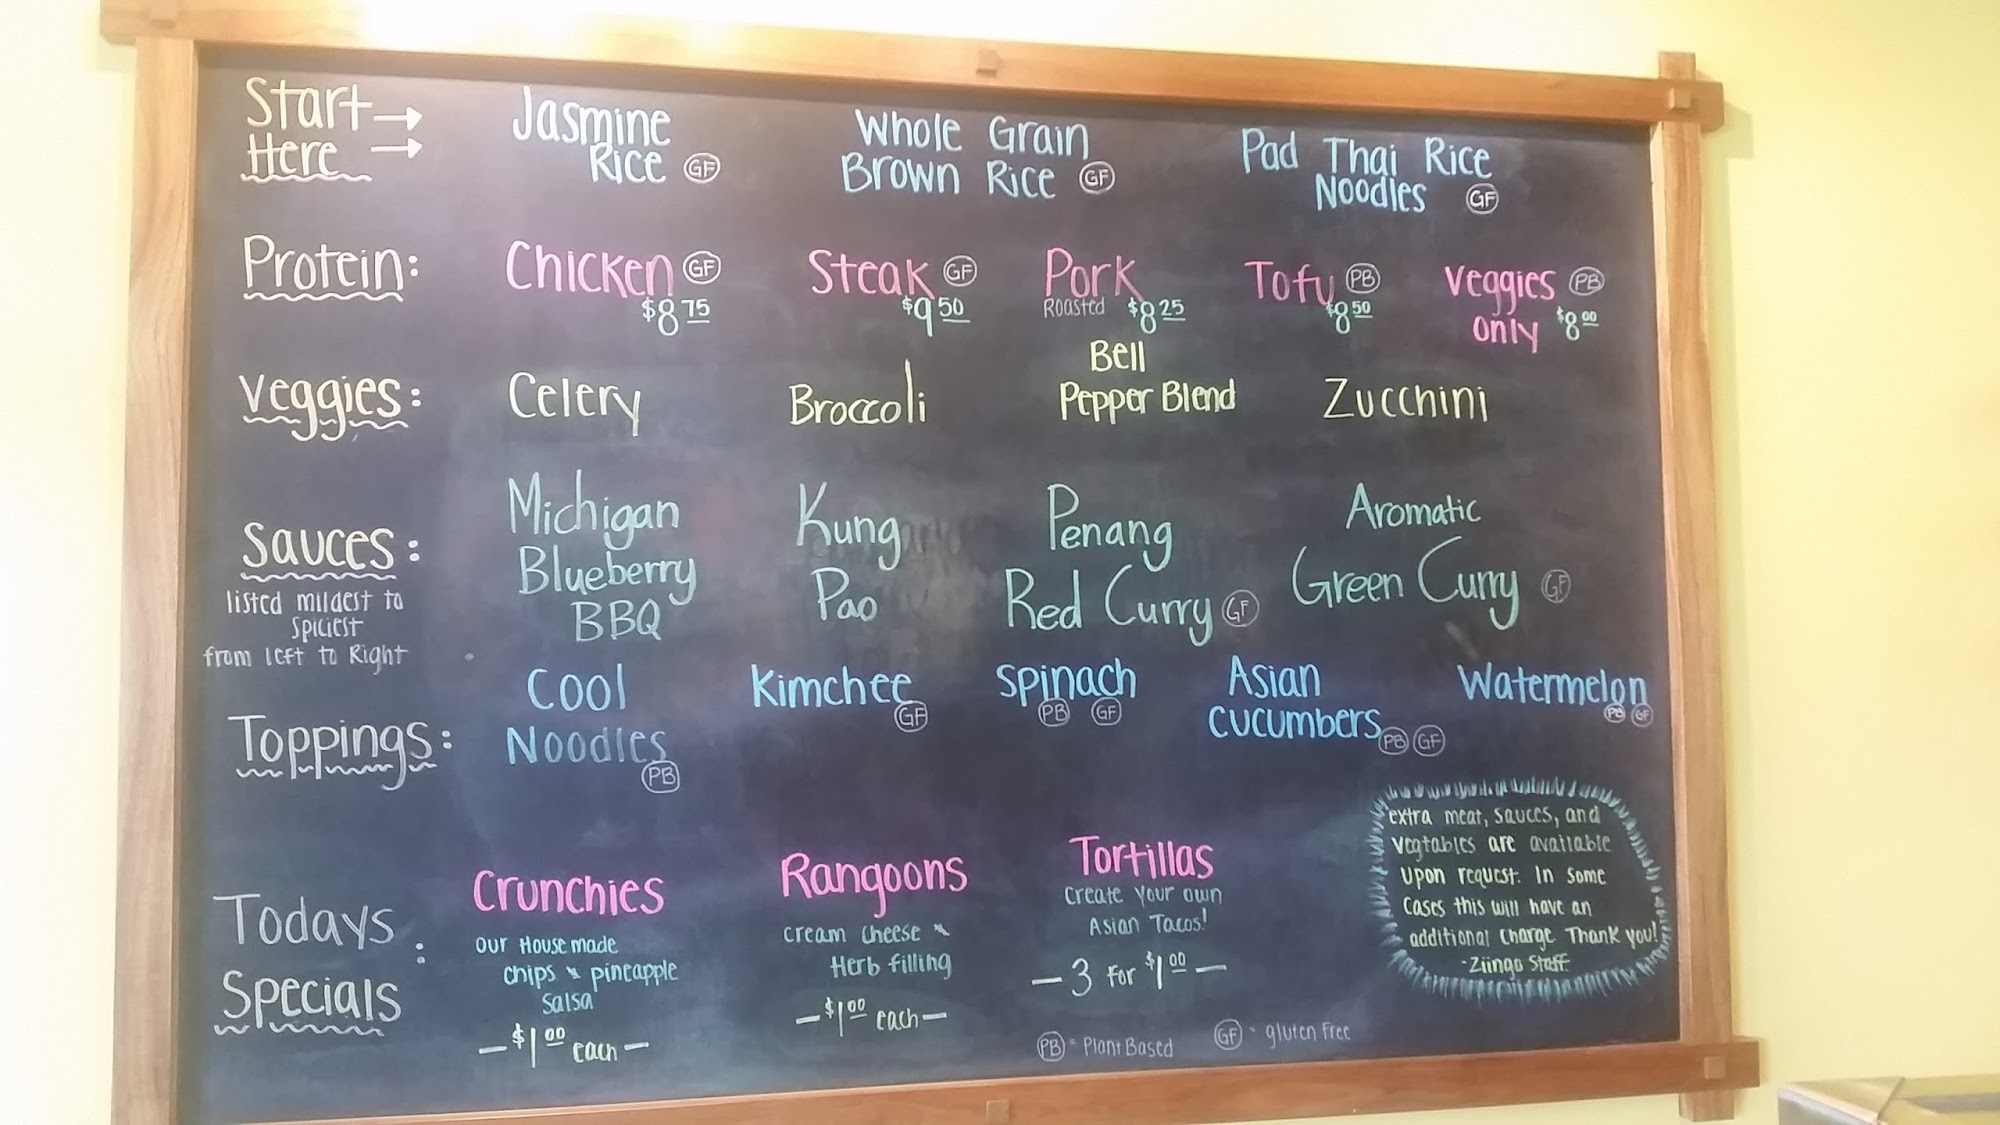 Start →
Here →
Jasmine
Rice GF
Whole Grain
Brown Rice GF
Pad Thai Rice
Noodles GF
Protein:
Chicken GF
$8 75
Steak GF
$9 50
Pork
Roasted $8 25
Tofu PB
$8 50
Veggies PB
only $8 00
Veggies:
Celery
Broccoli
Bell
Pepper Blend
Zucchini
Sauces:
listed mildest to
spiciest
from left to Right
Michigan
Blueberry
BBQ
Kung
Pao
Penang
Red Curry GF
Aromatic
Green Curry GF
Toppings:
Cool
Noodles
PB
Kimchee
GF
Spinach
PB GF
Asian
Cucumbers PB GF
Watermelon
PB GF
Todays
Specials :
Crunchies
our House made
chips & pineapple
salsa
- $1 00 each -
Rangoons
cream cheese &
Herb filling
- $1 00 each -
Tortillas
Create your own
Asian Tacos!
- 3 for $1 00 -
extra meat, sauces, and
vegtables are available
upon request. In some
cases this will have an
additional charge. Thank you!
- Ziingo Staff
PB = Plant Based
GF = gluten free